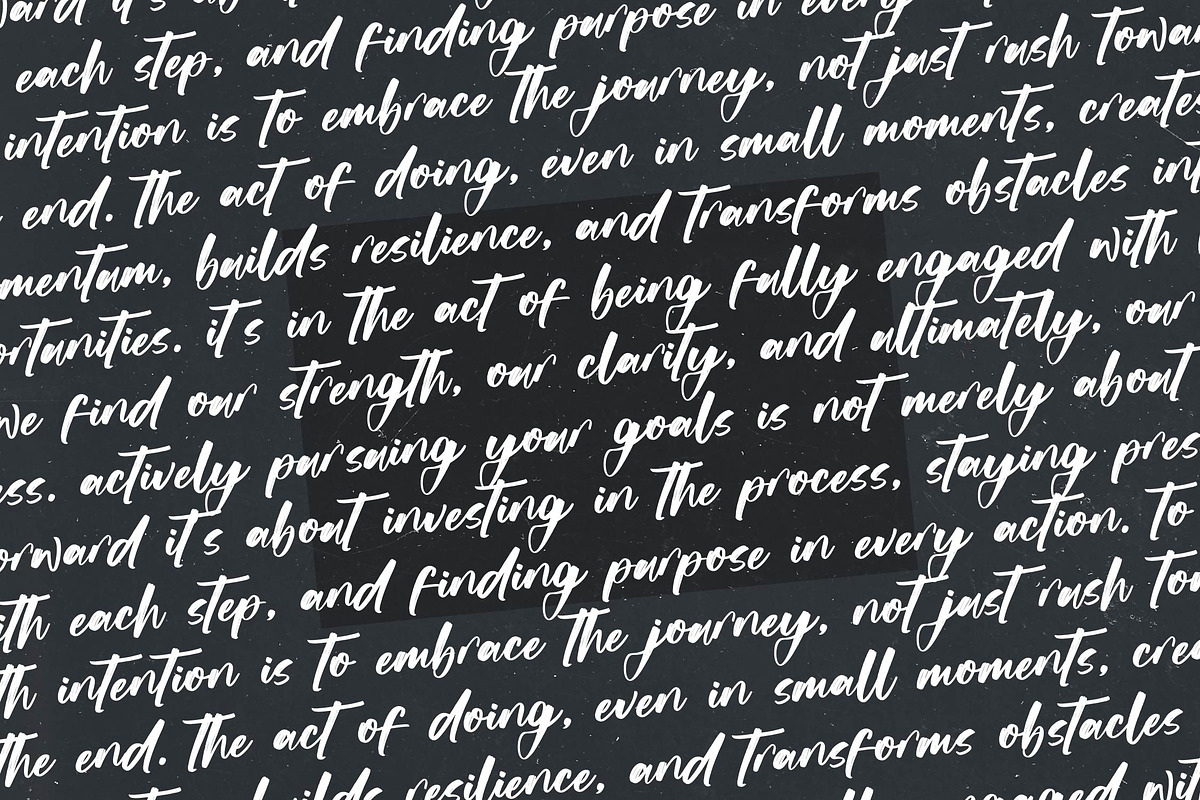 it's
each step, and finding purpose in every
intention is to embrace the journey, not just rush
end. the act of doing, even in small moments, creates
builds resilience, and transforms obstacles
it's in the act of being fully engaged with
we find our strength, our clarity, and ultimately, our
actively pursuing your goals is not merely about
it's about investing in the process, staying
each step, and finding purpose in every action. to
intention is to embrace the journey, not just rush
the end. the act of doing, even in small moments,
resilience, and transforms obstacles